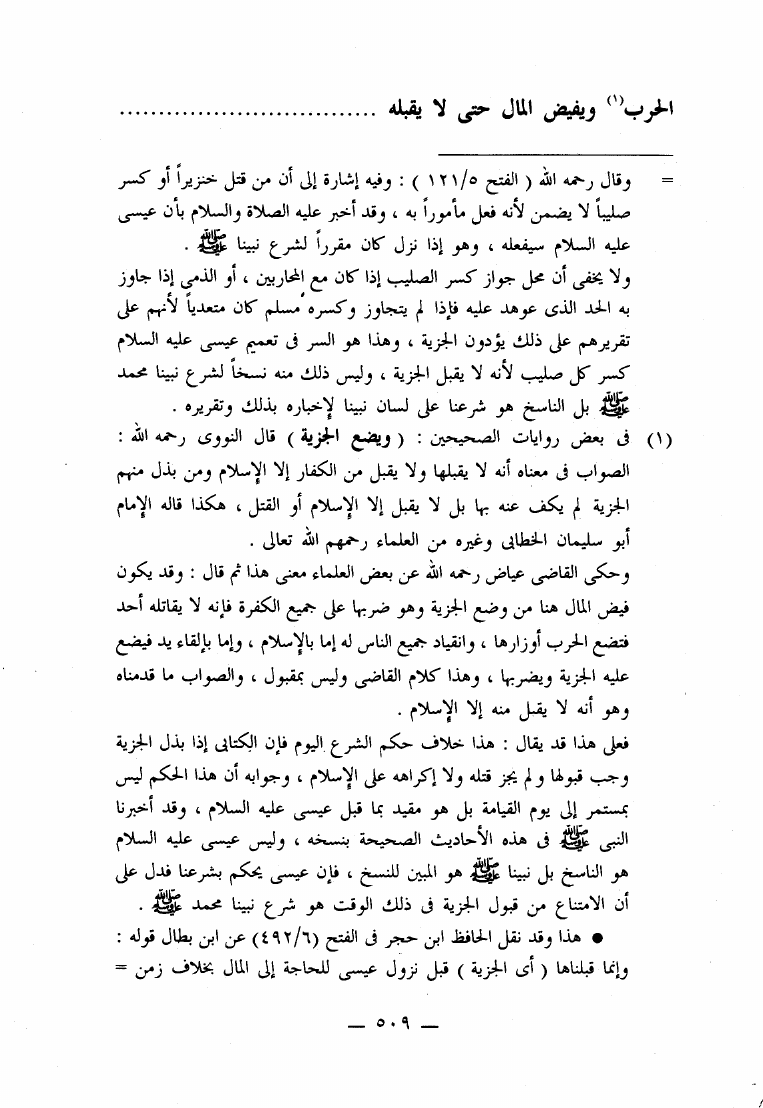 الحرب(١) ويفيض المال حتى لا يقبله ................................
= وقال رحمه الله ( الفتح ١٢١/٥ ) : وفيه إشارة إلى أن من قتل خنزيراً أو كسر
صليباً لا يضمن لأنه فعل مأموراً به ، وقد أخبر عليه الصلاة والسلام بأن عيسى
عليه السلام سيفعله ، وهو إذا نزل كان مقرراً لشرع نبينا ﷺ .
ولا يخفى أن محل جواز كسر الصليب إذا كان مع المحاربين ، أو الذمى إذا جاوز
به الحد الذى عوهد عليه فإذا لم يتجاوز وكسره مسلم كان متعدياً لأنهم على
تقريرهم على ذلك يؤدون الجزية ، وهذا هو السر فى تعميم عيسى عليه السلام
كسر كل صليب لأنه لا يقبل الجزية ، وليس ذلك منه نسخاً لشرع نبينا محمد
ﷺ بل الناسخ هو شرعنا على لسان نبينا لإخباره بذلك وتقريره .
(١) فى بعض روايات الصحيحين : ( ويضع الجزية ) قال النووى رحمه الله :
الصواب فى معناه أنه لا يقبلها ولا يقبل من الكفار إلا الإسلام ومن بذل منهم
الجزية لم يكف عنه بها بل لا يقبل إلا الإسلام أو القتل ، هكذا قاله الإمام
أبو سليمان الخطابى وغيره من العلماء رحمهم الله تعالى .
وحكى القاضى عياض رحمه الله عن بعض العلماء معنى هذا ثم قال : وقد يكون
فيض المال هنا من وضع الجزية وهو ضربها على جميع الكفرة فإنه لا يقاتله أحد
فتضع الحرب أوزارها ، وانقياد جميع الناس له إما بالإسلام ، وإما بإلقاء يد فيضع
عليه الجزية ويضربها ، وهذا كلام القاضى وليس بمقبول ، والصواب ما قدمناه
وهو أنه لا يقبل منه إلا الإسلام .
فعلى هذا قد يقال : هذا خلاف حكم الشرع اليوم فإن الكتابى إذا بذل الجزية
وجب قبولها ولم يجز قتله ولا إكراهه على الإسلام ، وجوابه أن هذا الحكم ليس
بمستمر إلى يوم القيامة بل هو مقيد بما قبل عيسى عليه السلام ، وقد أخبرنا
النبى ﷺ فى هذه الأحاديث الصحيحة بنسخه ، وليس عيسى عليه السلام
هو الناسخ بل نبينا ﷺ هو المبين للنسخ ، فإن عيسى يحكم بشرعنا فدل على
أن الامتناع من قبول الجزية فى ذلك الوقت هو شرع نبينا محمد ﷺ .
● هذا وقد نقل الحافظ ابن حجر فى الفتح (٤٩٢/٦) عن ابن بطال قوله :
وإنما قبلناها ( أى الجزية ) قبل نزول عيسى للحاجة إلى المال بخلاف زمن =
— ٥٠٩ —